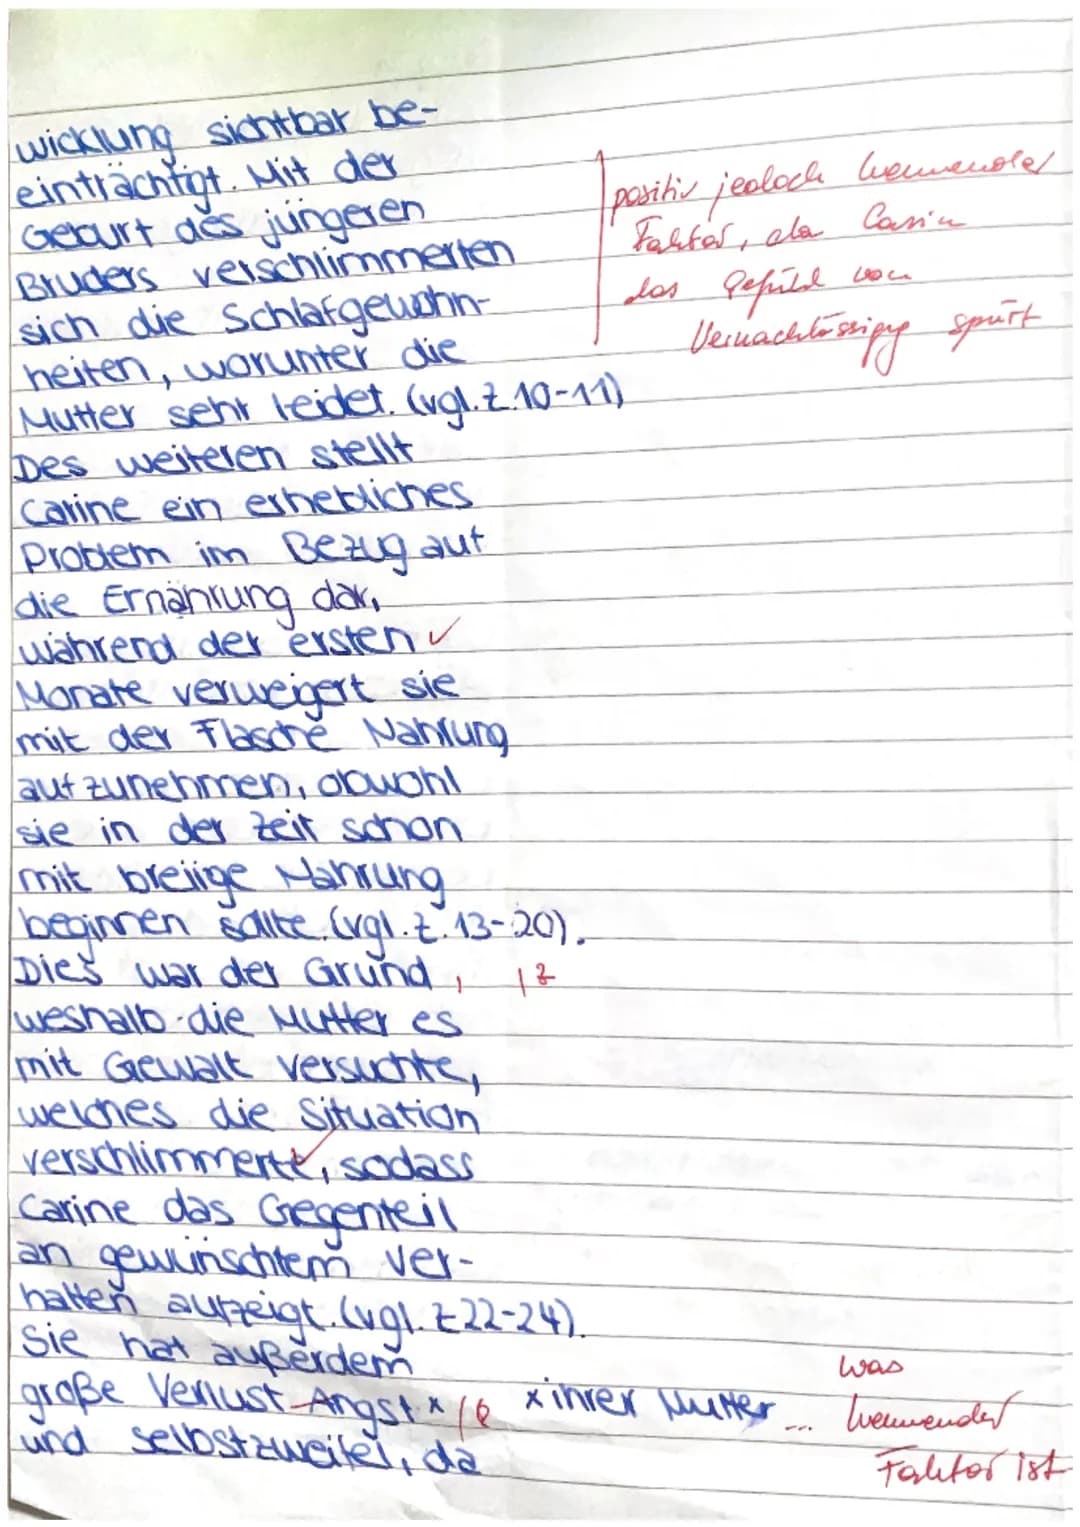 wicklung sichtbar be-
einträchtigt. Mit der
Geburt des jüngeren
Bruders verschlimmerten
sich die Schlafgewohn-
heiten, worunter die
Mutter sehr leidet. (vgl. Z. 10-11)
positiv jedoch hemmender
Faktor, da Carin
das Gefühl von
Vernachlässigug spürt
Des weiteren stellt
Carine ein erhebliches
Problem im Bezug auf
die Ernährung dar,
während der ersten ✓
Monate verweigert sie
mit der Flasche Nahrung
aufzunehmen, obwohl
sie in der Zeit schon
mit breiige Nahrung
beginnen sollte. (vgl. Z. 13-20).
Dies war der Grund, | Z
weshalb die Mutter es
mit Gewalt versuchte,
welches die Situation
verschlimmerte, sodass
Carine das Gegenteil
an gewünschtem Ver-
halten aufzeigt. (vgl. Z 22-24).
Sie hat außerdem
große Verlust-Angst x x ihrer Mutter
und selbstzweifel, da
... was
hemmender
Faktor ist